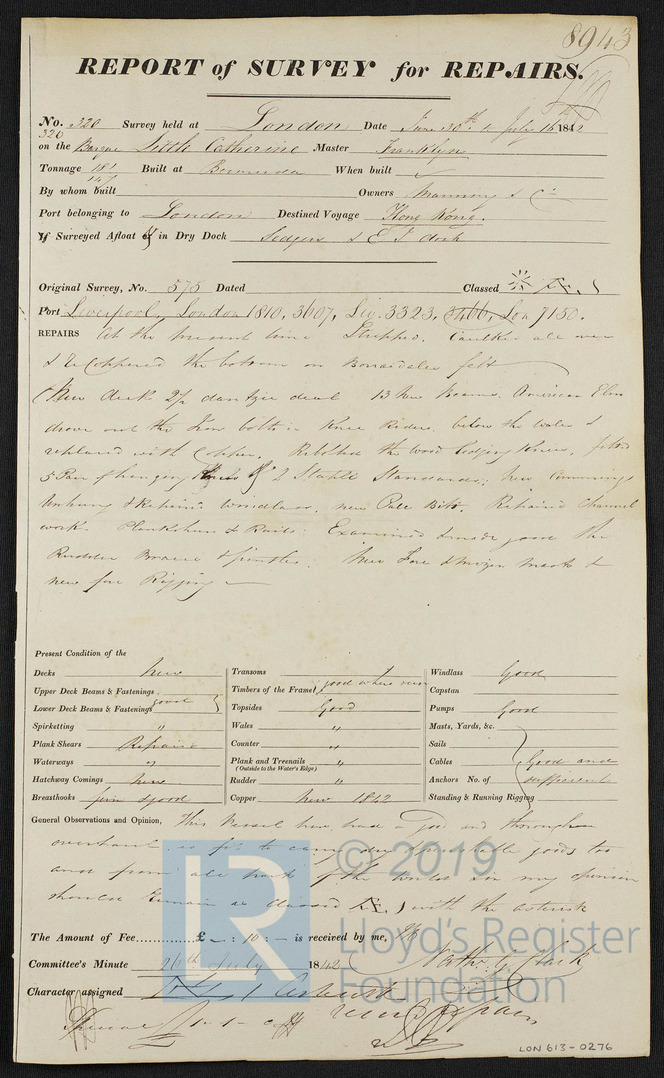 8943
REPORT of SURVEY for REPAIRS.
No. 320 Survey held at London Date June 30th & July 16th 1842
320
on the Barque Little Catherine Master Franklyn
Tonnage 181 Built at Bermuda When built
147
By whom built Owners Manning & Co
Port belonging to London Destined Voyage Hong Kong.
If Surveyed Afloat or in Dry Dock & E I dock
Original Survey, No. 575 Dated Classed
Port Liverpool, London 1810, 3607, Liv. 3323, 3466, Lon 7150.
REPAIRS At the present time Stripped, Caulked all over
& ReCoppered the bottom on felt
New deck 2½ dantzic deal 13 New Beams. American Elm
drove out the Iron bolts in Knee Riders, below the Wales &
replaced with Copper. Rebolted the wood lodging Knees, fitted
5 Pair of hanging Knees & 2 Staple Standards; New Commings
Unhung & Repaired Windlass, new Pale Bitt. Repaired Channel
work. Planksheer & Rails. Examined & made good the
Rudder Braces & pintles. New Fore & Mizen masts &
new fore Rigging
Present Condition of the
Decks New
Upper Deck Beams & Fastenings
Lower Deck Beams & Fastenings good
Spirketting "
Plank Shears Repaired
Waterways "
Hatchway Comings New
Breasthooks firm & good
Transoms
Timbers of the Frame good where seen
Topsides Good
Wales "
Counter "
Plank and Treenails "
(Outside to the Water's Edge)
Rudder "
Copper New 1842
Windlass Good
Capstan
Pumps Good
Masts, Yards, &c.
Sails
Cables Good and
Anchors No. of sufficient
Standing & Running Rigging
General Observations and Opinion, This Vessel has had a Good and thorough
overhaul is fit to carry dry & perishable goods to
and from all parts of the World & in my opinion
should remain as classed with the asterisk
The Amount of Fee............£ – : 10 : – is received by me,
Committee's Minute 26th July 1842
Character assigned
© 2019
LR
Lloyd's Register
Foundation
LON 613-0276